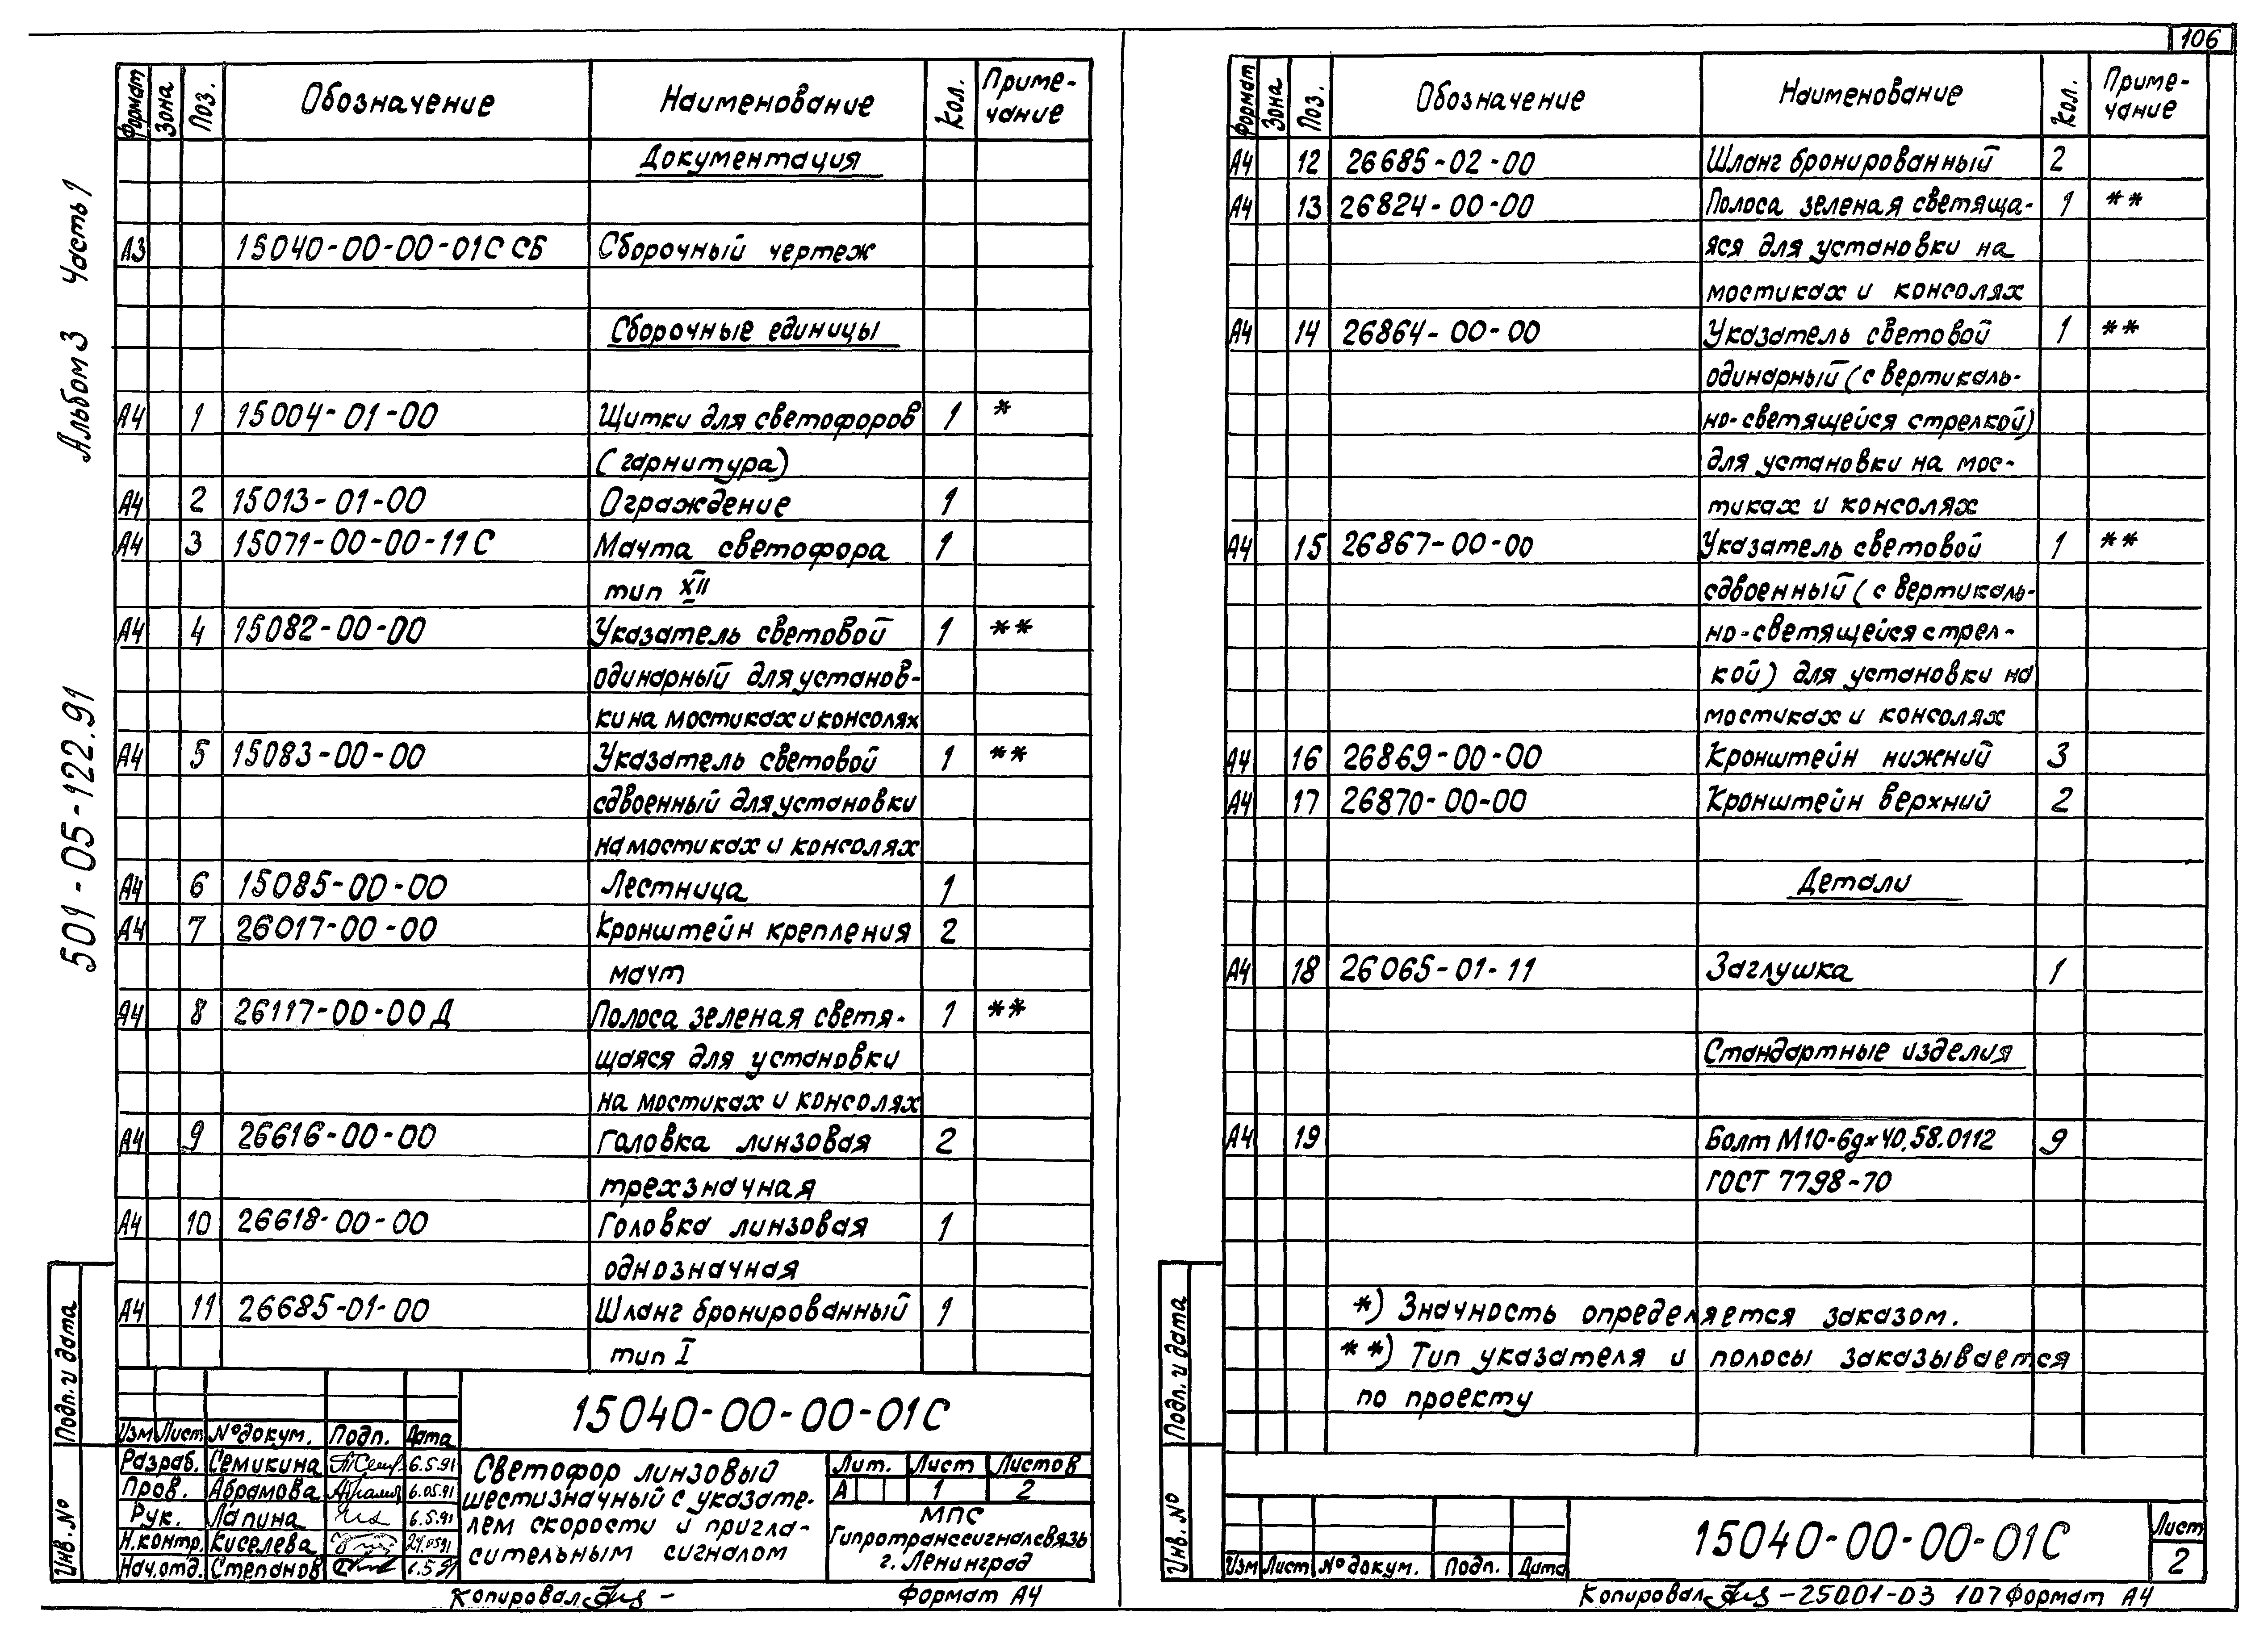 106
Альбом 3 Часть 1
501-05-122.91
Формат Зона Поз. Обозначение Наименование Кол. Приме-
чание
Документация
А3 15040-00-00-01С СБ Сборочный чертеж
Сборочные единицы
А4 1 15004-01-00 Щитки для светофоров 1 *
(гарнитура)
А4 2 15013-01-00 Ограждение 1
А4 3 15071-00-00-11С Мачта светофора 1
тип XII
А4 4 15082-00-00 Указатель световой 1 **
одинарный для установ-
ки на мостиках и консолях
А4 5 15083-00-00 Указатель световой 1 **
сдвоенный для установки
на мостиках и консолях
А4 6 15085-00-00 Лестница 1
А4 7 26017-00-00 Кронштейн крепления 2
мачт
А4 8 26117-00-00Д Полоса зеленая светя- 1 **
щаяся для установки
на мостиках и консолях
А4 9 26616-00-00 Головка линзовая 2
трехзначная
А4 10 26618-00-00 Головка линзовая 1
однозначная
А4 11 26685-01-00 Шланг бронированный 1
тип I
15040-00-00-01С
Изм Лист № докум. Подп. Дата
Разраб. Семикина 6.5.91
Пров. Абрамова 6.05.91
Рук. Лапина 6.5.91
Н.контр. Киселева
Нач.отд. Степанов 6.5.91
Светофор линзовый
шестизначный с указате-
лем скорости и пригла-
сительным сигналом
Лит. Лист Листов
А 1 2
МПС
Гипротранссигналсвязь
г. Ленинград
Подп. и дата
Инв. №
Копировал Формат А4
Формат Зона Поз. Обозначение Наименование Кол. Приме-
чание
А4 12 26685-02-00 Шланг бронированный 2
А4 13 26824-00-00 Полоса зеленая светяща- 1 **
яся для установки на
мостиках и консолях
А4 14 26864-00-00 Указатель световой 1 **
одинарный (с вертикаль-
но-светящейся стрелкой)
для установки на мос-
тиках и консолях
А4 15 26867-00-00 Указатель световой 1 **
сдвоенный (с вертикаль-
но-светящейся стрел-
кой) для установки на
мостиках и консолях
А4 16 26869-00-00 Кронштейн нижний 3
А4 17 26870-00-00 Кронштейн верхний 2
Детали
А4 18 26065-01-11 Заглушка 1
Стандартные изделия
А4 19 Болт М10-6gх40.58.0112 9
ГОСТ 7798-70
*) Значность определяется заказом.
**) Тип указателя и полосы заказывается
по проекту
Подп. и дата
Инв. №
Изм Лист № докум. Подп. Дата
15040-00-00-01С
Лист
2
Копировал -25001-03 107 Формат А4